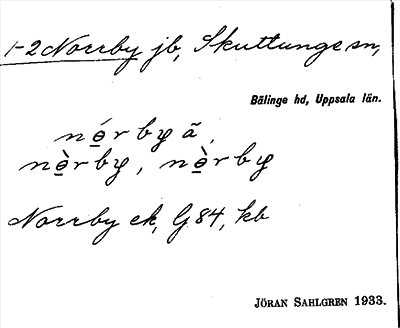 1-2 Norrby jb, Skuttunge sn,
Bälinge hd, Uppsala län.
nó̱rby ā,
nò̱rby, nò̱rby
Norrby ek, G 84, kb
JÖRAN SAHLGREN 1933.